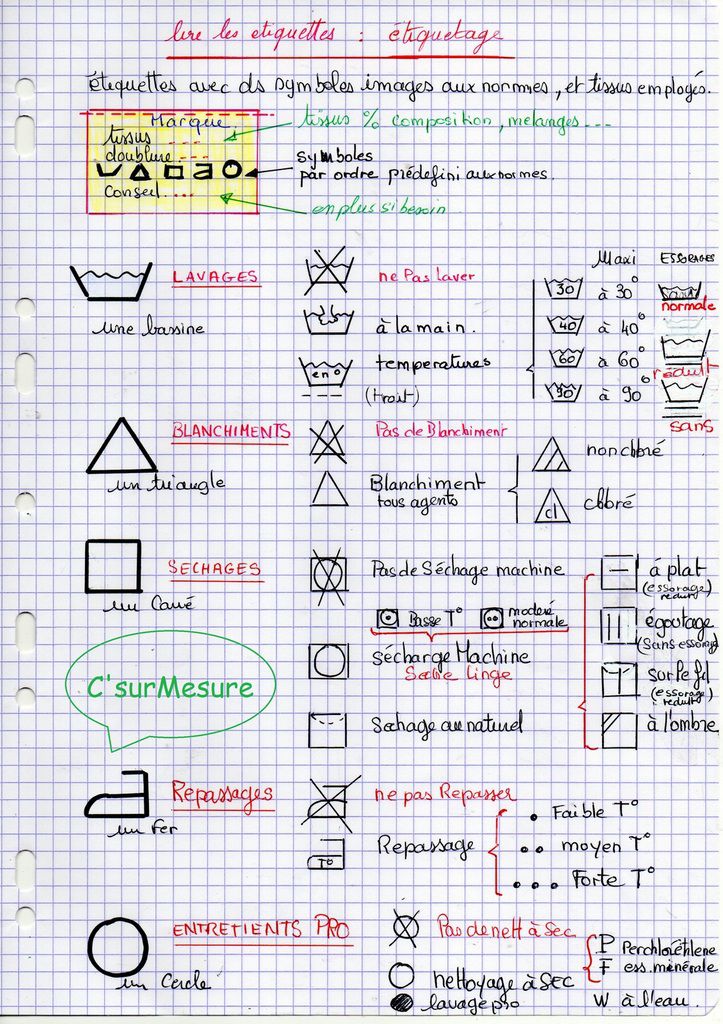 lire les etiquettes : étiquetage
étiquettes avec ds symboles images aux normes, et tissus employés.
Marque
tissus ....
doublure ....
conseil ....
tissus % composition, melanges ...
symboles
par ordre prédefini aux normes.
en plus si besoin
LAVAGES
une bassine
ne Pas Laver
à la main.
en °
temperatures
(trait)
Maxi
ESSORAGES
30 à 30°
normale
40 à 40°
60 à 60°
réduit
90 à 90°
sans
BLANCHIMENTS
un triangle
Pas de Blanchiment
Blanchiment
tous agents
non chloré
cl
chloré
SECHAGES
un Carré
Pas de Séchage machine
Basse T°
moderé
normale
séchage Machine
Seche linge
Sechage au naturel
à plat
(essorage)
réduit
égoutage
(Sans essorage
sur le fil
(essorage
à réduit)
à l'ombre
C'surMesure
Repassages
un Fer
ne pas Repasser
T°
Repassage
Faible T°
moyen T°
Forte T°
ENTRETIENTS PRO
un Cercle
Pas de nett à Sec
nettoyage à SEC
lavage pro
P Perchloréthlene
F ess. minérale
W à l'eau.